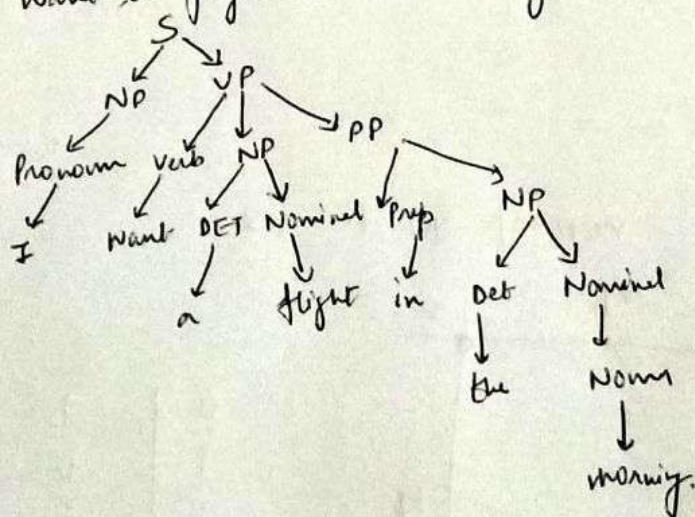 S
NP VP
PP
Pronoun Verb NP
NP
I want DET Nominal Prep
a flight in Det Nominal
the Noun
morning.